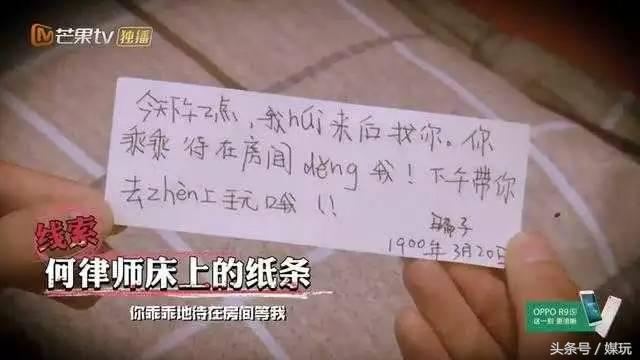 芒果tv 独播
今天下午2点,我húi来后找你。你
乖乖待在房间děng我!下午带你
去zhèn上玩哦!!
骗子
1900年3月20日
线索
何律师床上的纸条
你乖乖地待在房间等我
OPPO R9s
这一刻 更清晰
头条号/媒玩